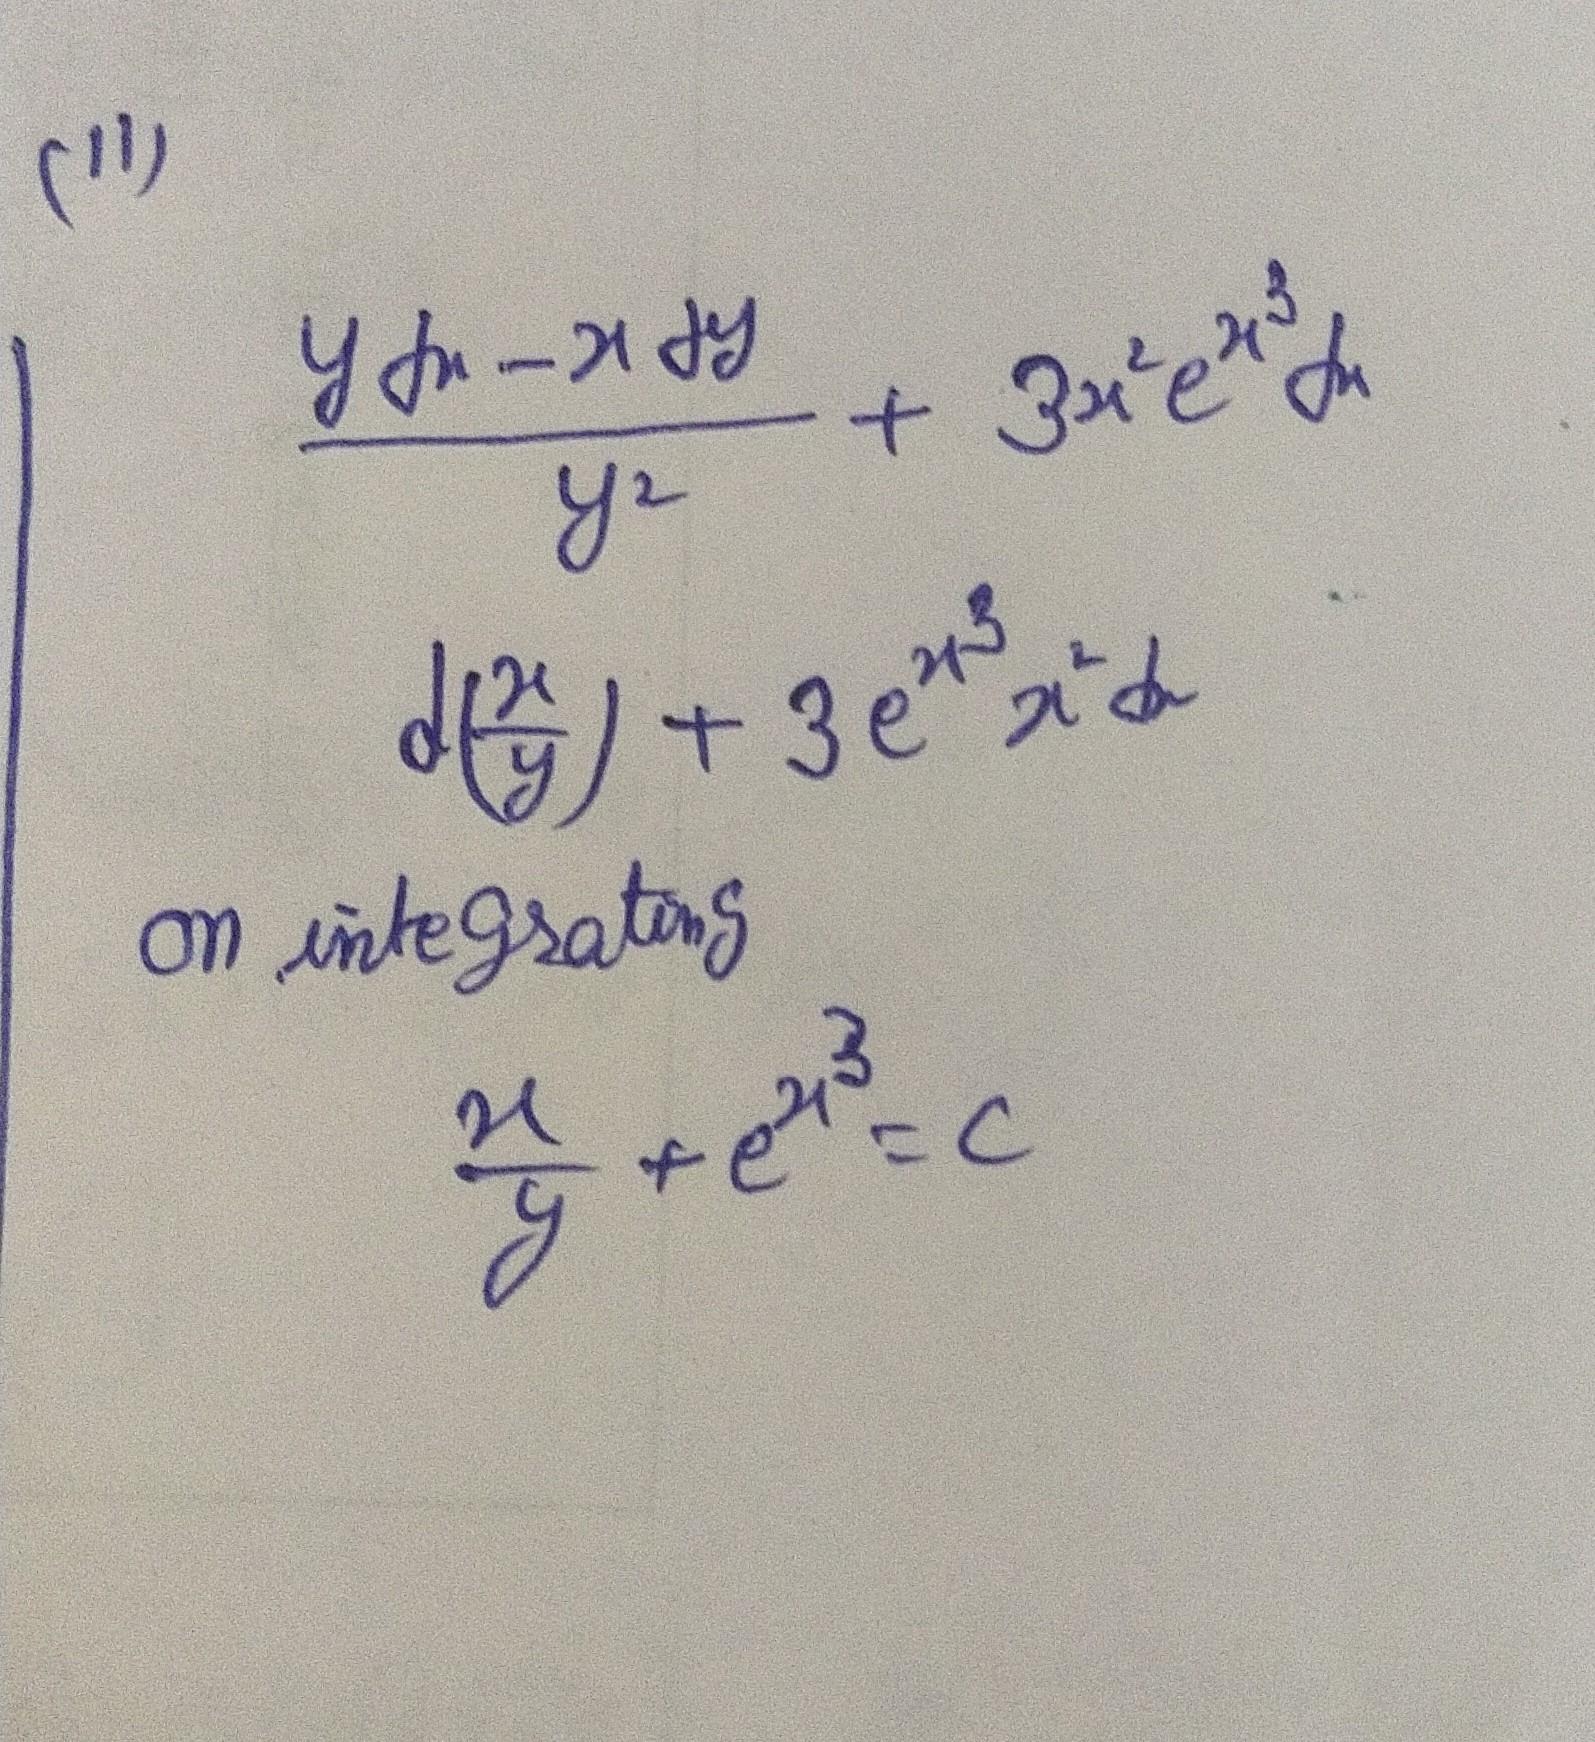 (11)
(y dx - x dy)/y² + 3x²e^{x³}dx
d(x/y) + 3e^{x³}x²dx
on integrating
x/y + e^{x³} = c